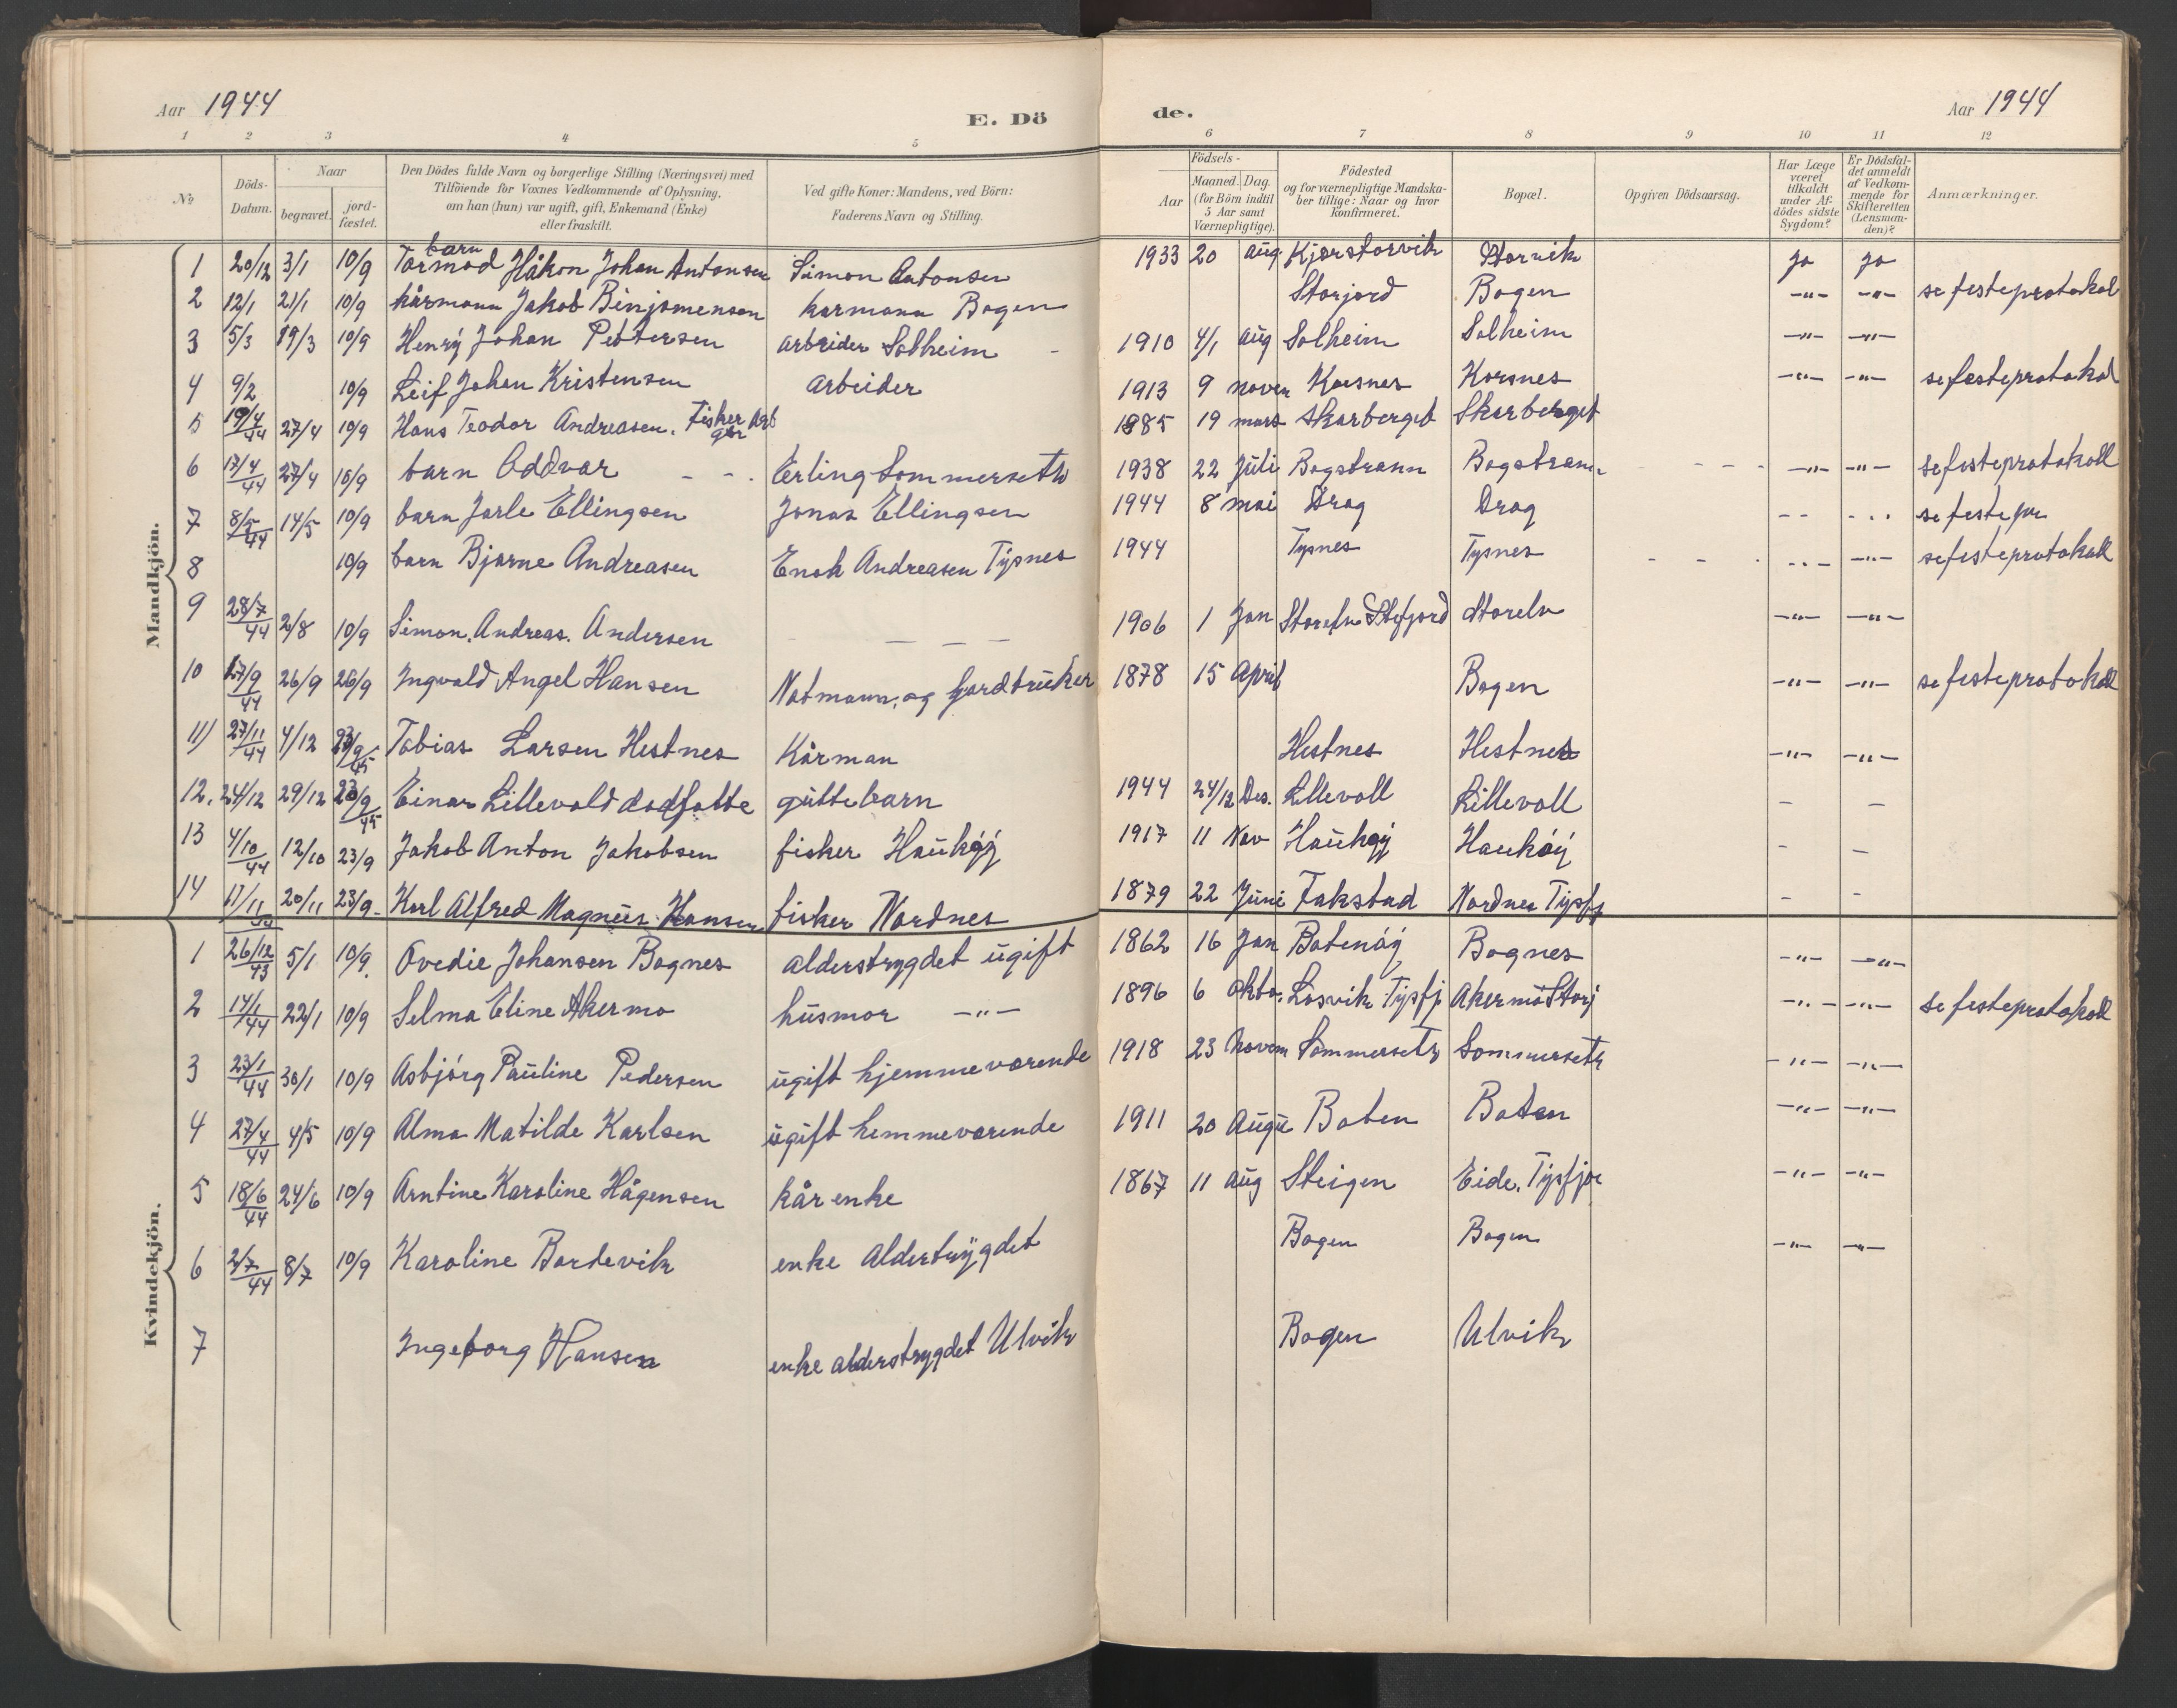 Aar 1944
E. Dö
de.
Aar 1944
1 2 3 4 5 6 7 8 9 10 11 12
№
Döds-Datum.
Naar
begravet.
jord-fæstet.
Den Dödes fulde Navn og borgerlige Stilling (Næringsvei) med
Tilföiende for Voxnes Vedkommende af Oplysning,
om han (hun) var ugift, gift, Enkemand (Enke)
eller fraskilt.
Ved gifte Koner: Mandens, ved Börn:
Faderens Navn og Stilling.
Födsels-
Aar
Maaned. Dag.
(for Börn indtil
5 Aar samt
Værnepligtige).
Födested
og for værnepligtige Mandska-
ber tillige: Naar og hvor
konfirmeret.
Bopæl.
Opgiven Dödsaarsag.
Har Læge
været
tilkaldt
under Af-
dödes sidste
Sygdom?
Er Dödsfal-
det anmeldt
af Vedkom-
mende for
Skifteretten
(Lensman-
den)?
Anmærkninger.
Mandkjön.
barn
1 20/12 3/1 10/9 Tormod Håkon Johan Antonsen Simon Antonsen 1933 20 aug. Kjørstorvik Storvik ja ja
2 12/1 21/1 10/9 kårmann Jakob Binjamensen karmann Bogen Storjord Bogen -"- -"- se festeprotokol
3 5/3 19/3 10/9 Henrÿ Johan Pettersen arbeider Solheim - 1910 4/1 aug Solheim Solheim -"- -"-
4 9/2 10/9 Leif Johan Kristensen arbeider 1913 9 novem Korsnes Korsnes -"- -"- se festeprotokol
5 19/4 44 27/4 10/9 Hans Teodor Andreasen. Fisker 1885 19 mars Skarberget Skarberget
6 17/4 44 27/4 10/9 barn Oddvar - - . Erling Sommerseth 1938 22 Juli Bogstrann Bogstrann - - - -"- -"- se festeprotokoll
7 8/5 44 14/5 10/9 barn Jarle Ellingsen Jonas Ellingsen 1944 8 mai Drag Drag -- ... se feste pr
8 10/9 barn Bjarne Andreasen Enok Andreasen Tÿsnes 1944 Tysnes Tysnes - - . ..- -"- se festeprotokoll
9 28/7 44 2/8 10/9 Simon. Andreas. Andersen - - - - 1906 1 Jan Storelv Stefjord Storelv -"- -"-
10 17/9 44 26/9 26/9 Ingvald Angel Hansen Notmann, og Gardbrüker 1878 15 April Bogen -"- -"- se festeprotokoll
11) 27/11 44 4/12 23/9 45 Tobias Larsen Hestnes Kårman Hestnes Hestnes -"- -"-
12. 24/12 29/12 23/9 45 Einar Lillevold dødfødte güttebarn 1944 24/12 Des. Lillevoll Lillevoll - -
13 4/10 44 12/10 23/9 Jakob Anton Jakobsen fisker Haükøÿ 1917 11 Nov Haükøÿ Haukøÿ - -
14 11/11 20/11 23/9- Karl Alfred Magnüs Hansen fisker Nordnes 1879 22 Jüni Fakstad Nordnes Tysfj - -
Kvindekjön.
1 26/12 43 5/1 10/9. Ovedie Johansen Bognes alderstrygdet ügift 1862 16 Jan Botenøÿ Bognes -"- -"-
2 14/1 44 22/1 10/9 Selma Eline Akermo hüsmor -"- 1896 6 Okto. Løsvik Tÿsfj Akermo Storj -"- -"- se festeprotokoll
3 23/1 44 30/1 10/9 Asbjórg Paüline Pedersen ügift hjemmevorende 1918 23 Novem Sommerseth Sommerseth -"- -"-
4 27/4 44 4/5 10/9 Alma Matilde Karlsen ügift hemmevorende 1911 20 Augü Boten Boten -"- -"-
5 18/6 44 24/6 10/9 Arntine Karoline Hågensen kår enke 1867 11 aüg Steigen Eide. Tÿsfjor -"- -"-
6 2/7 44 8/7 10/9 Karoline Bordevik enke Aldertrÿgdet Bogen Bogen -"- -"-
7 Ingeborg Hansen enke alderstrygdet Ulvik Bogen Ulvik